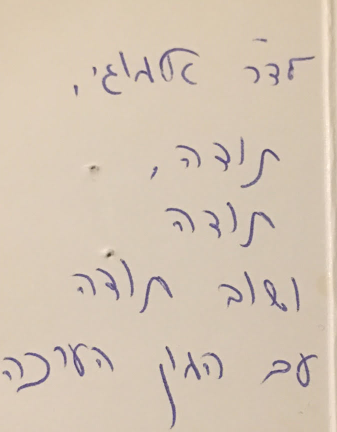 לדר אלמוגי,
תודה,
תודה
ושוב תודה
עם המון הערכה